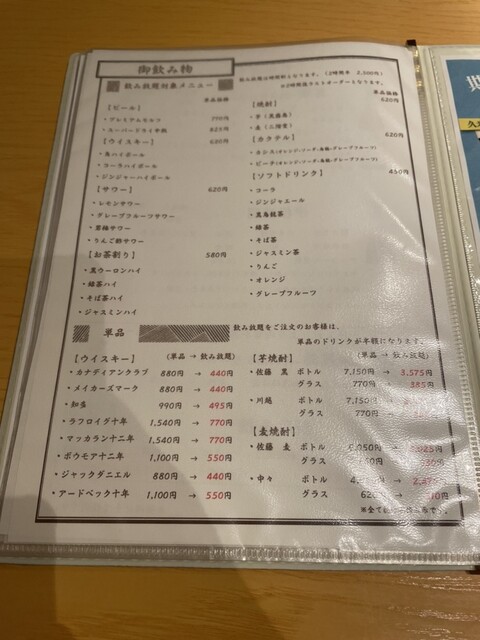 御飲み物
飲み放題対象メニュー
飲み放題は時間制となります。(2時間半 2,200円)
※2時間後ラストオーダーとなります。
単品価格
【ビール】
・プレミアムモルツ 770円
・スーパードライ中瓶 825円
【ウイスキー】 620円
・角ハイボール
・コーラハイボール
・ジンジャーハイボール
【サワー】 620円
・レモンサワー
・グレープフルーツサワー
・りんご酢サワー
【お茶割り】 580円
・黒ウーロンハイ
・緑茶ハイ
・そば茶ハイ
・ジャスミンハイ
単品価格
【焼酎】 620円
・芋(黒霧島)
・麦(二階堂)
【カクテル】 620円
・カシス(オレンジ・ソーダ・烏龍・グレープフルーツ)
・ピーチ(オレンジ・ソーダ・烏龍・グレープフルーツ)
【ソフトドリンク】 450円
・コーラ
・ジンジャエール
・黒烏龍茶
・緑茶
・そば茶
・ジャスミン茶
・りんご
・オレンジ
・グレープフルーツ
単品
飲み放題をご注文のお客様は、
単品のドリンクが半額になります。
【ウイスキー】 (単品 → 飲み放題)
・カナディアンクラブ 880円 → 440円
・メイカーズマーク 880円 → 440円
・知多 990円 → 495円
・ラフロイグ十年 1,540円 → 770円
・マッカラン十二年 1,540円 → 770円
・ボウモア十二年 1,100円 → 550円
・ジャックダニエル 880円 → 440円
・アードベック十年 1,100円 → 550円
【芋焼酎】 (単品 → 飲み放題)
・佐藤 黒 ボトル 7,150円 → 3,575円
グラス 770円 → 385円
・川越 ボトル 7,150円 →
グラス 770円 →
【麦焼酎】
・佐藤 麦 ボトル →
グラス →
・中々 ボトル →
グラス →